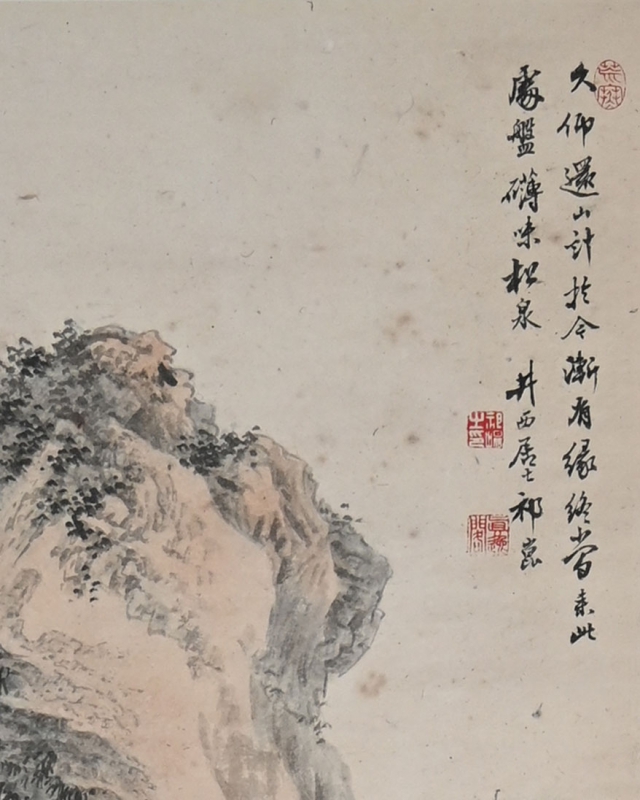 久仰還山計於今漸有緣終當來此
處盤礴味松泉 井西居士祁崑